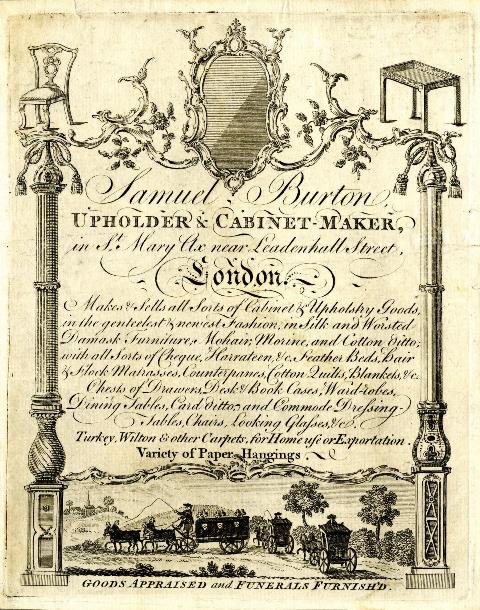 Samuel Burton,
UPHOLDER & CABINET-MAKER,
in St. Mary Ax near Leadenhall Street,
London.
Makes & Sells all Sorts of Cabinet & Upholstry Goods,
in the genteelest & newest Fashion, in Silk and Worsted
Damask Furniture, Mohair, Morine, and Cotton ditto;
with all Sorts of Cheque, Harrateen, &c. Feather Beds, Hair
& Flock Matrasses, Counterpanes, Cotton Quilts, Blankets, &c.
Chests of Drawers, Desk & Book Cases, Ward-robes,
Dining Tables, Card ditto; and Commode Dressing-
Tables, Chairs, Looking Glasses, &c.
Turkey, Wilton & other Carpets, for Home use or Exportation.
Variety of Paper Hangings.
GOODS APPRAISED and FUNERALS FURNISH'D.